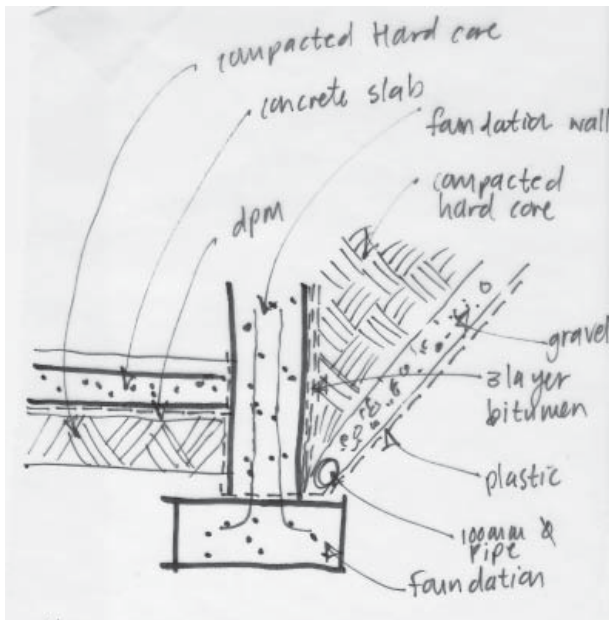 compacted Hard core
concrete slab
foundation wall
compacted
hard core
dpm
gravel
3 layer
bitumen
plastic
100mm Ø
pipe
foundation